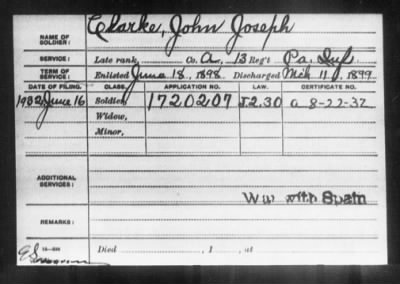 NAME OF SOLDIER: Clarke, John Joseph
SERVICE: Late rank, Co. A, 13 Reg't Pa. Inf
TERM OF SERVICE: Enlisted June 18, 1898. Discharged Mch 11, 1899
DATE OF FILING. CLASS. APPLICATION NO. LAW. CERTIFICATE NO.
1932 June 16 Soldier, 1720207 J.2.30 a 8-22-32
Widow,
Minor,
ADDITIONAL SERVICES:
War with Spain
REMARKS:
Died , 1 , at